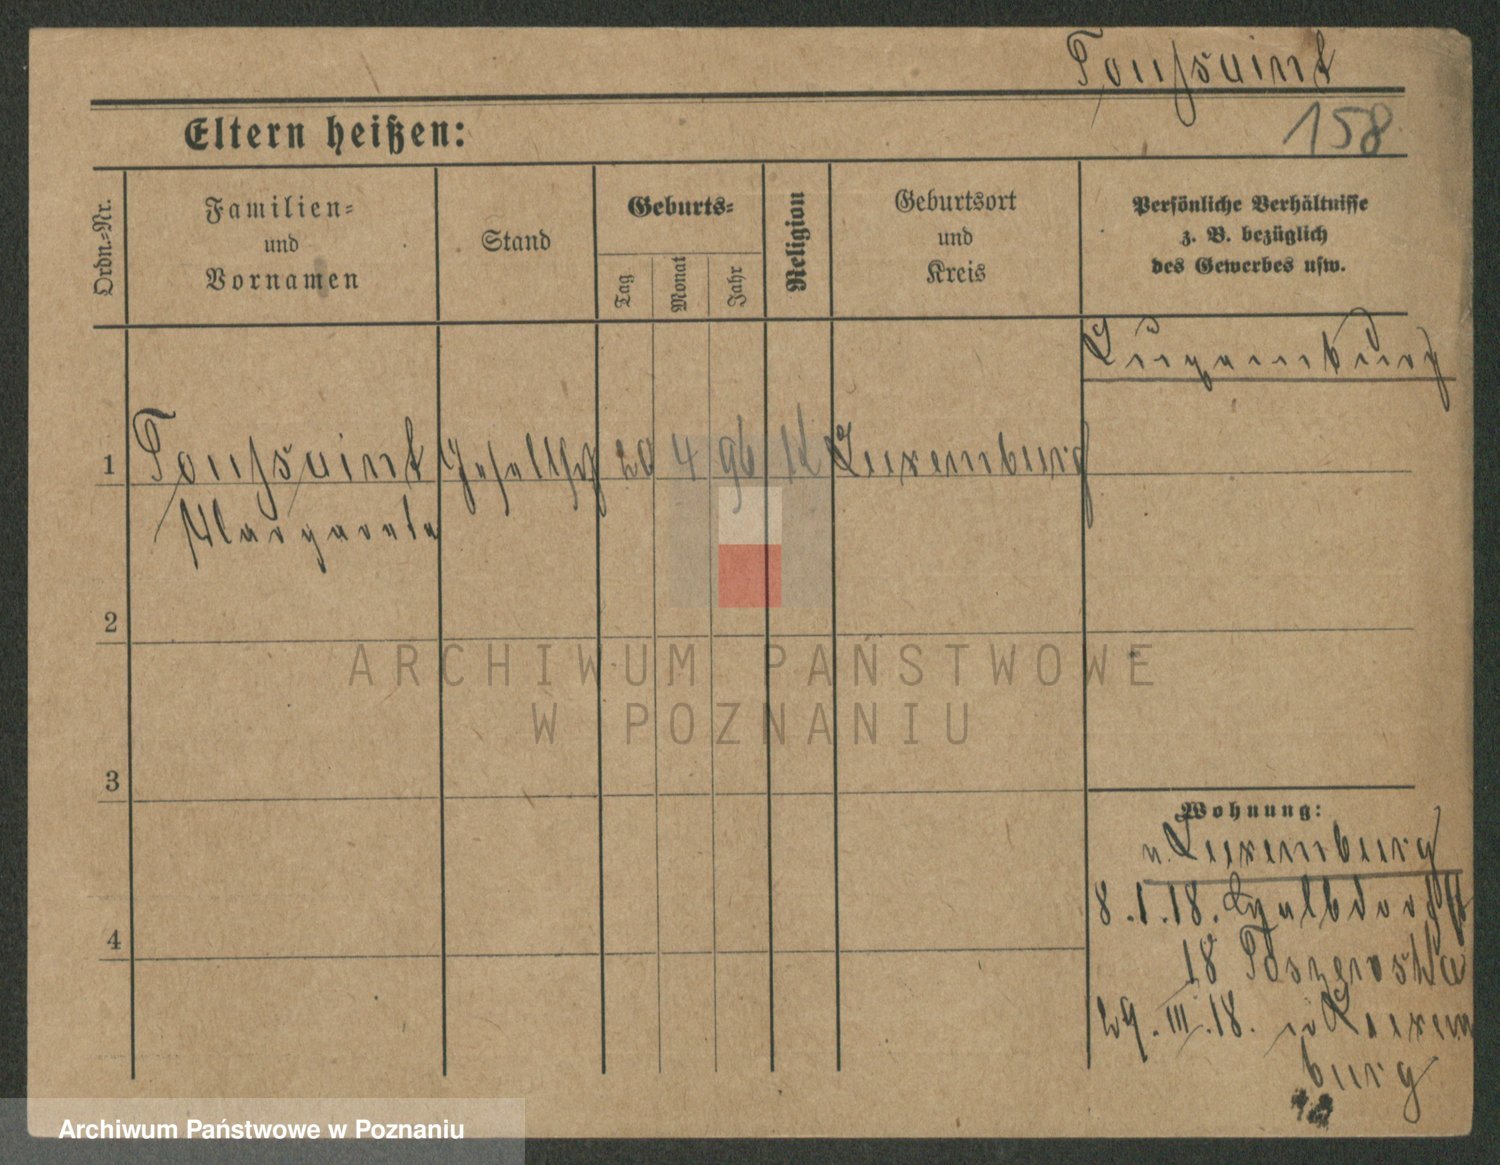 Toussaint
158
Eltern heißen:
Ordn.-Nr.
Familien-
und
Vornamen
Stand
Geburts-
Tag
Monat
Jahr
Religion
Geburtsort
und
Kreis
Persönliche Verhältnisse
z. B. bezüglich
des Gewerbes usw.
Luxemburg
1 Toussaint 20 4 96 K Luxemburg
Margareta
2
3
4
ARCHIWUM PAŃSTWOWE
W POZNANIU
Wohnung:
v. Luxemburg
8.1.18.
18
29.III.18. Luxem
burg
Archiwum Państwowe w Poznaniu